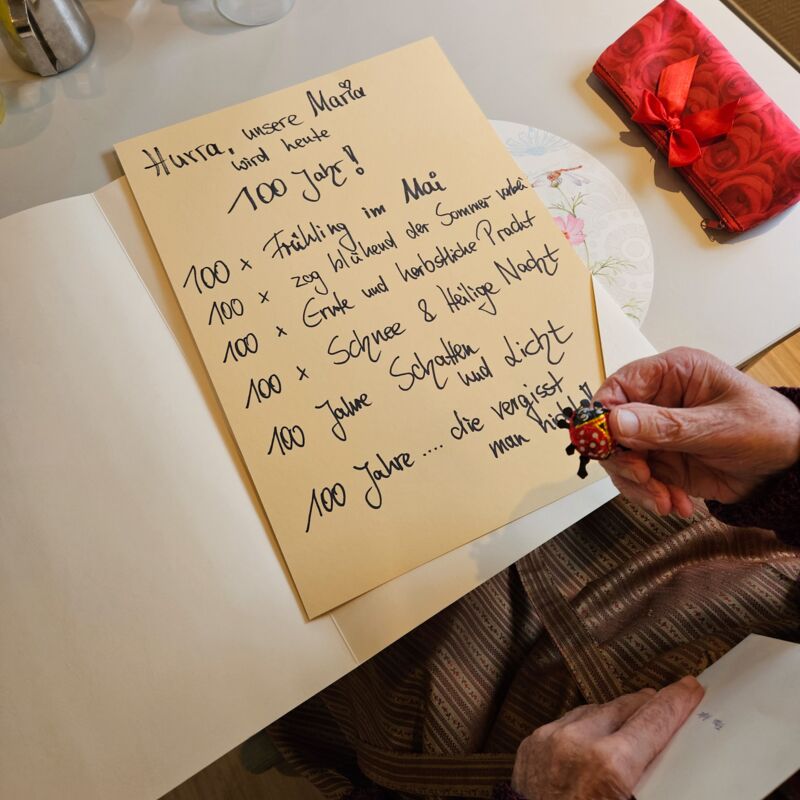 Hurra, unsere Maria
wird heute
100 Jahr!
100 x Frühling im Mai
100 x zog blühend der Sommer vorbei
100 x Ernte und herbstliche Pracht
100 x Schnee & Heilige Nacht
100 Jahre Schatten
und Licht
100 Jahre .... die vergisst
man